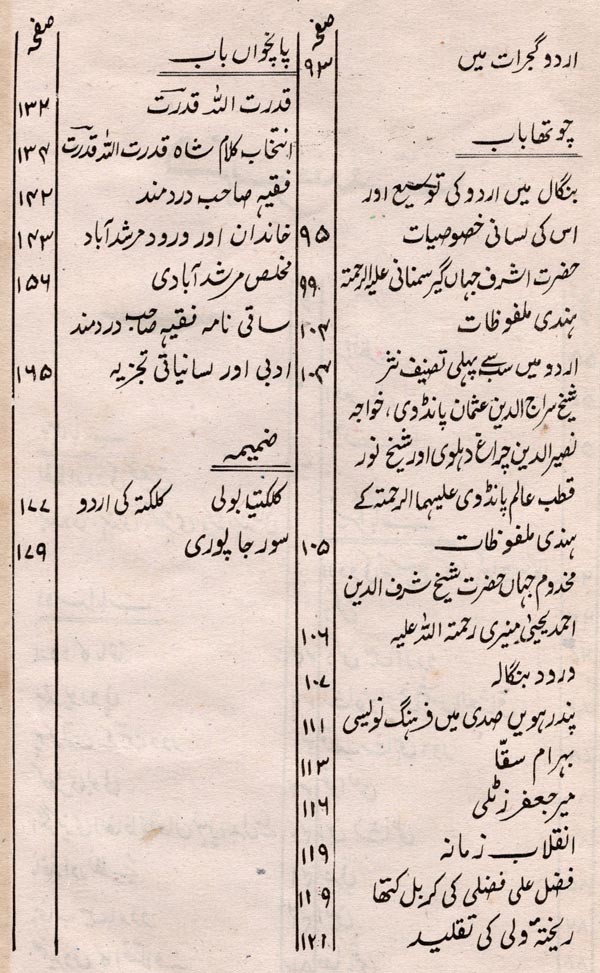 صفحہ
اردو گجرات میں ۹۳
چوتھا باب
بنگال میں اردو کی توسیع اور
اس کی لسانی خصوصیات ۹۵
حضرت اشرف جہاں گیر سمنانی علیہ الرحمتہ ۹۹
ہندی ملفوظات ۱۰۳
اردو میں سب سے پہلی تصنیف نثر ۱۰۴
شیخ سراج الدین عثمان پانڈوی، خواجہ
نصیر الدین چراغ دہلوی اور شیخ نور
قطب عالم پانڈوی علیہما الرحمتہ کے
ہندی ملفوظات ۱۰۵
مخدوم جہاں حضرت شیخ شرف الدین
احمد یحییٰ منیری رحمتہ اللہ علیہ ۱۰۶
درود بنگالہ ۱۰۷
پندرہویں صدی میں فرہنگ نویسی ۱۱۱
بہرام سقّا ۱۱۳
میر جعفر زٹلی ۱۱۶
انقلاب زمانہ ۱۱۹
فضل علی فضلی کی کربل کتھا ۱۱۹
ریختہ ولی کی تقلید ۱۲۱
صفحہ
پانچواں باب
قدرت اللہ قدرت ۱۳۲
انتخاب کلام شاہ قدرت اللہ قدرت ۱۳۴
فقیہ صاحب دردمند ۱۴۲
خاندان اور ورود مرشد آباد ۱۴۳
مخلص مرشد آبادی ۱۵۶
ساقی نامہ فقیہ صاحب دردمند
ادبی اور لسانیاتی تجزیہ ۱۶۵
ضمیمہ
کلکتیا بولی کلکتہ کی اردو ۱۷۷
سورجا پوری ۱۷۹